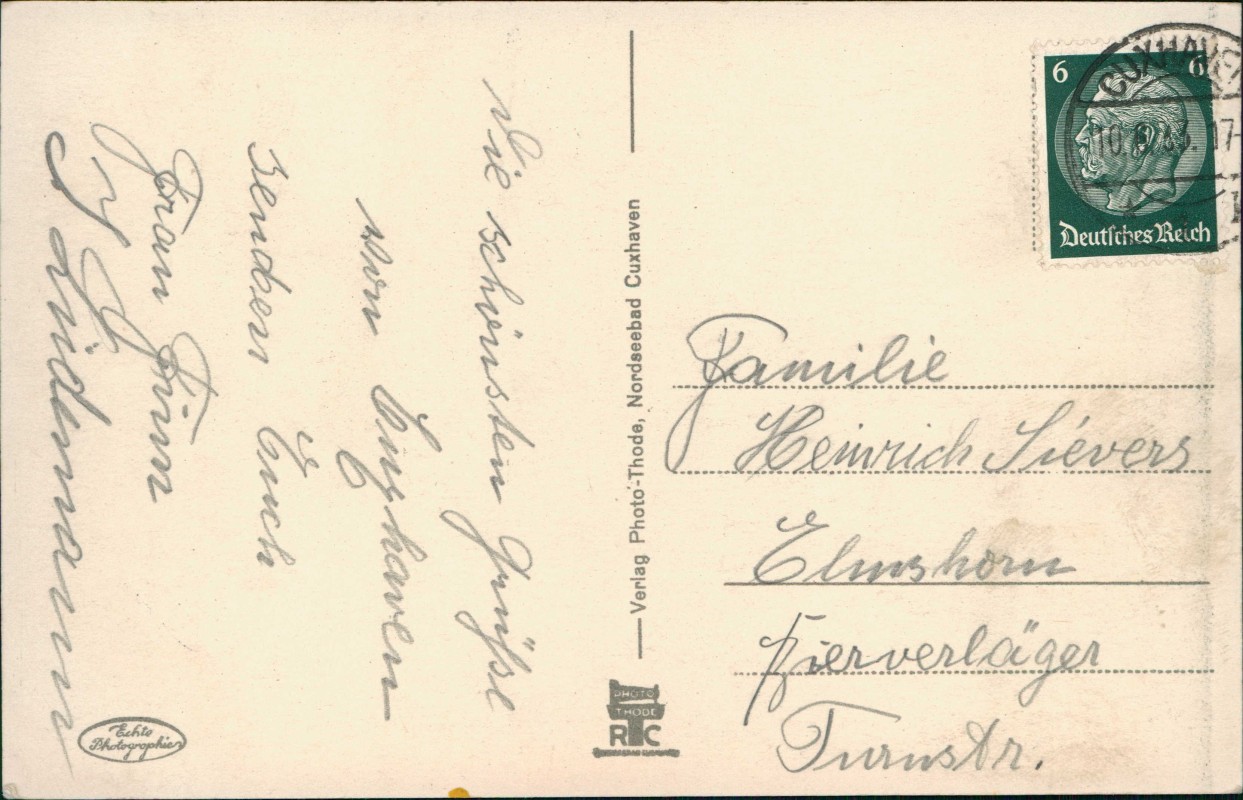 Die schönsten Grüsse
von Cuxhaven
senden Euch
Frau Timm
u
Lindemann
Echte
Photographie
Verlag Photo-Thode, Nordseebad Cuxhaven
PHOTO
THODE
R C
6 6
Deutsches Reich
CUXHAVEN
17-
Familie
Heinrich Sievers
Elmshorn
Bierverläger
Turnstr.